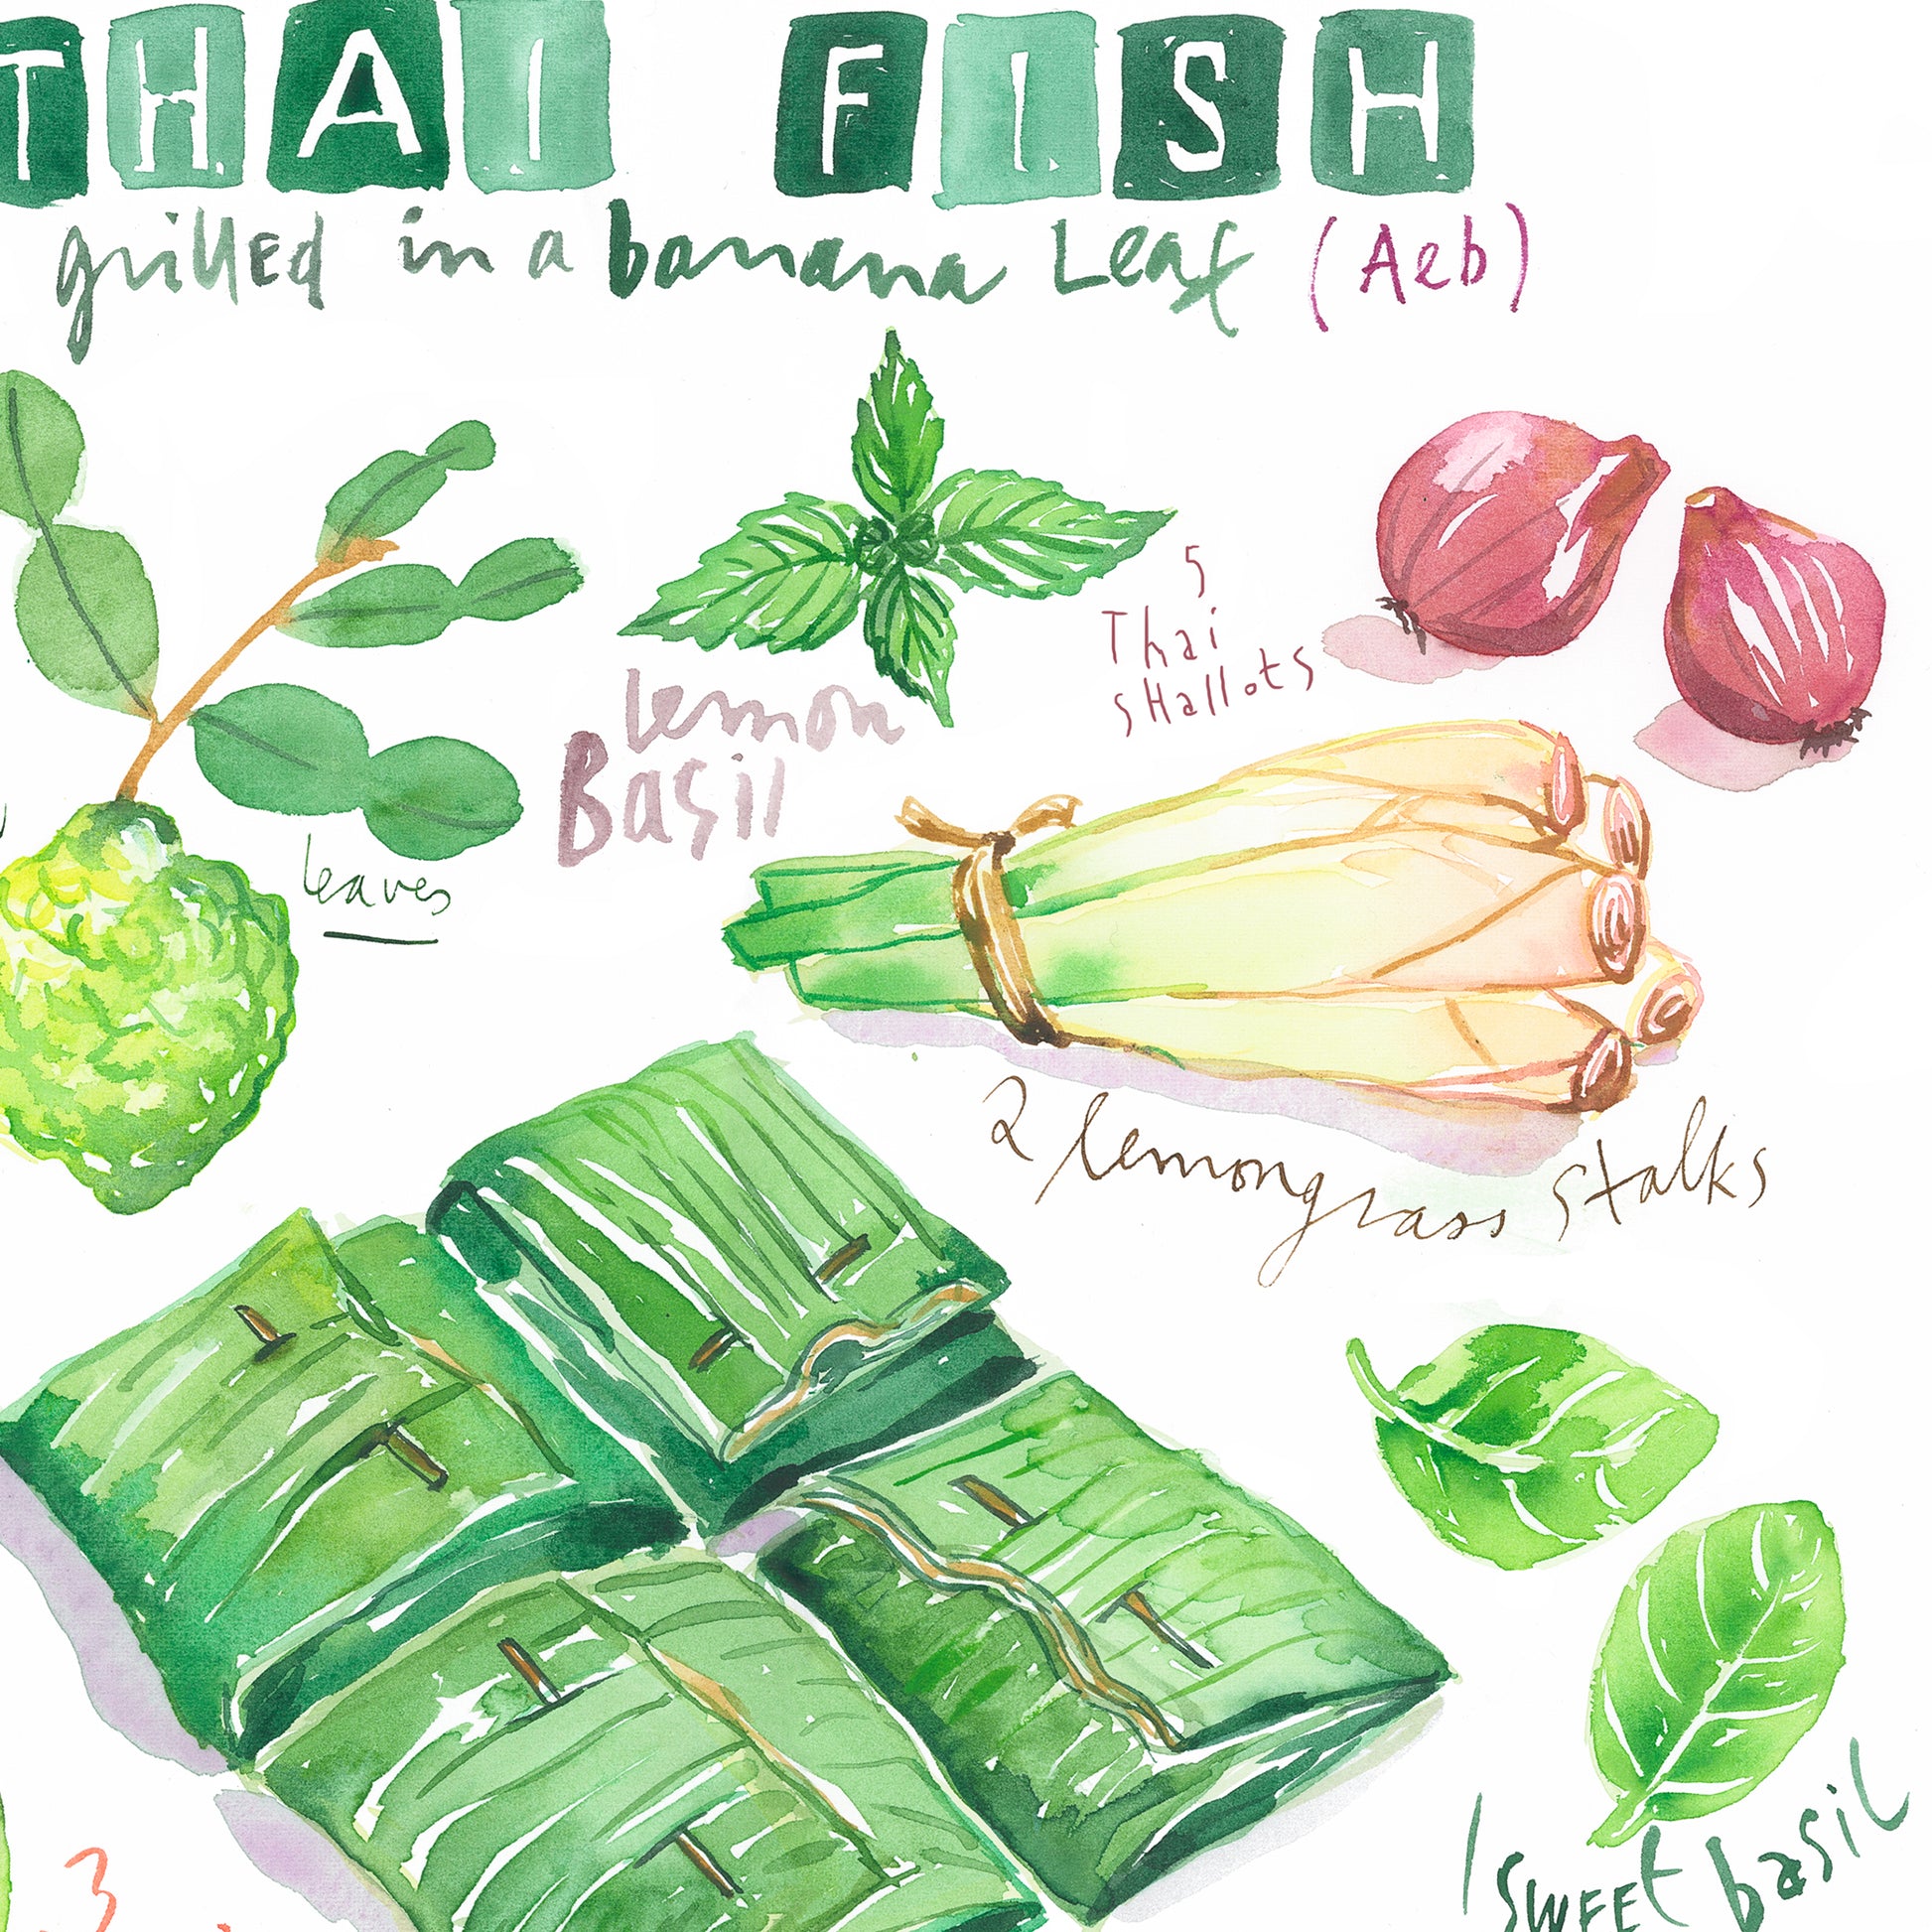 THAI FISH
grillEd in a banana Leaf (Aeb)
5
Thai
sHallots
lemon
Basil
leaves
2 lemongrass stalks
1 swEEt basil
3